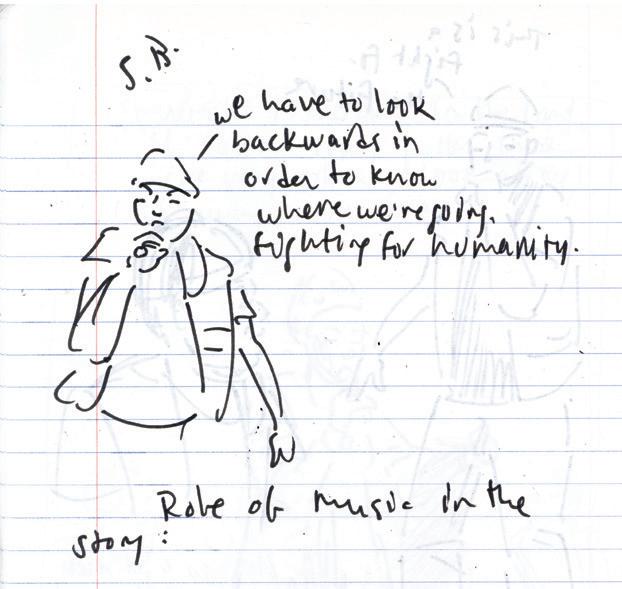 S.B.
we have to look
backwards in
order to know
where we're going.
fighting for humanity.
Role of music in the
story: